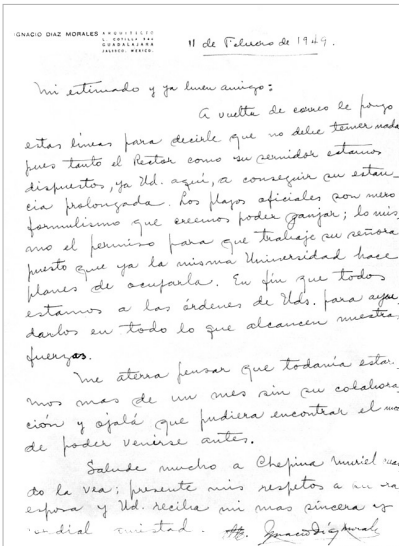 IGNACIO DIAZ MORALES ARQUITECTO
L. COTILLA
GUADALAJARA
JALISCO, MEXICO.
11 de Febrero de 1949.
Mi estimado y ya buen amigo:
A vuelta de correo le pongo
estas líneas para decirle que no debe temer nada
pues tanto el Rector como su servidor estamos
dispuestos, ya Ud. aquí, a conseguir su estan-
cia prolongada. Los plazos oficiales son mero
formulismo que creemos poder zanjar; lo mis-
mo el permiso para que trabaje su señora
puesto que ya la misma Universidad hace
planes de ocuparla. En fin que todos
estamos a las órdenes de Uds. para ayu-
darlos en todo lo que alcancen nuestras
fuerzas.
Me aterra pensar que todavía estar.
mos mas de un mes sin su colabora-
ción y ojalá que pudiera encontrar el mo
de poder venirse antes.
Salude mucho a Chepina Muriel
do la vea; presente mis respetos a
esposa y Ud. reciba mi mas sincera y
dial amistad. Ignacio Díaz Morales